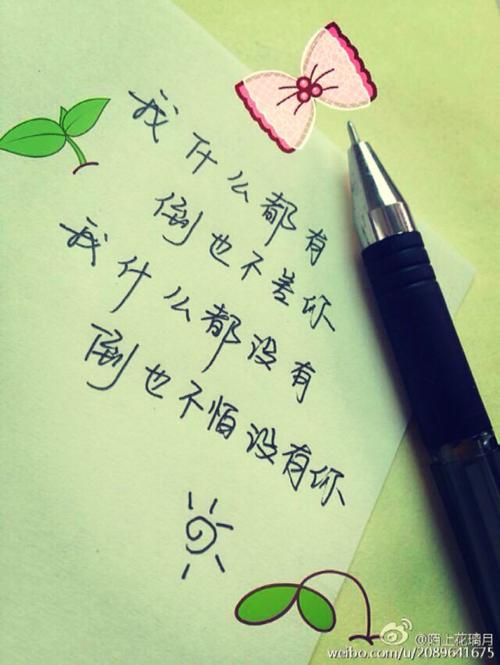 我什么都有
倒也不差你
我什么都没有
倒也不怕没有你
@陌上花璃月
weibo.com/u/2089641675